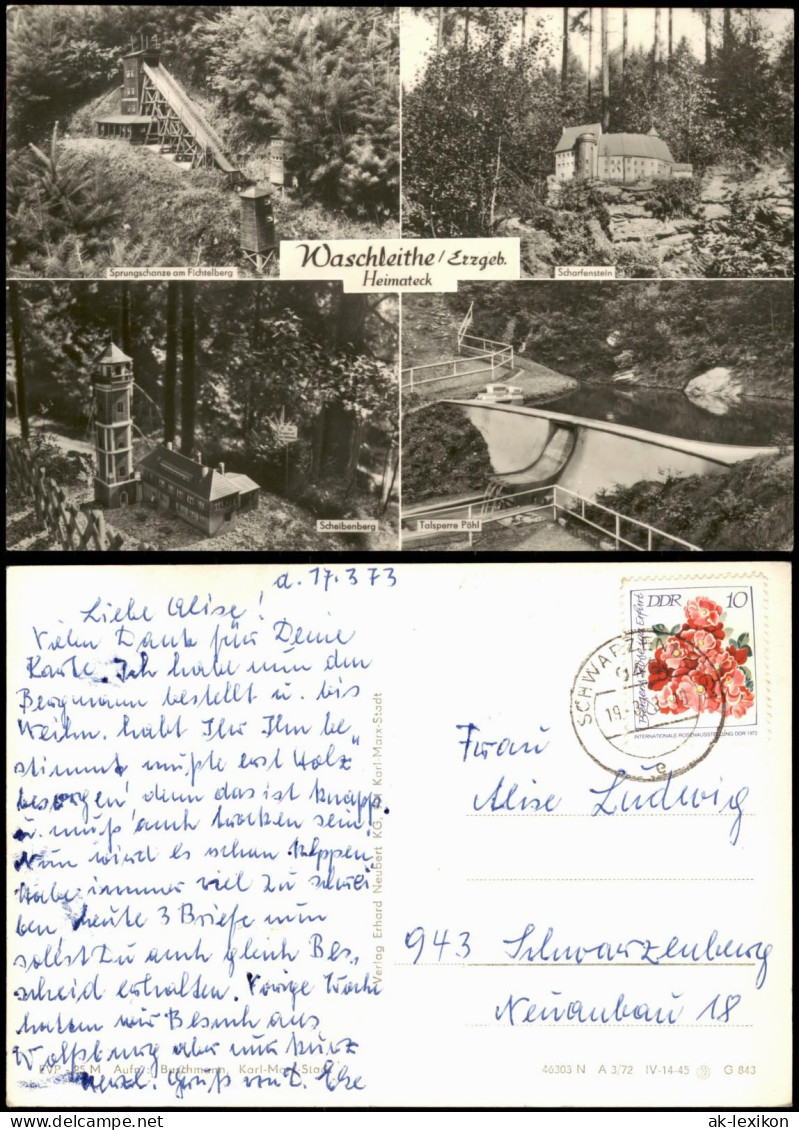 Sprungschanze am Fichtelberg
Waschleithe/Erzgeb.
Heimateck
Scharfenstein
Scheibenberg
Talsperre Pöhl
d. 17.3.73
Liebe Alise!
Vielen Dank für Deine
Karte. Ich habe nun den
Bergmann bestellt u. bis
Weihn. habt Ihr Ihn be„
stimmt mußte erst Holz
besorgen denn das ist knapp
u. muß auch trocken sein.
Nun wird es schon kleppen
habe immer viel zu schrei
ben heute 3 Briefe nun
sollst Du auch gleich Bes„
scheid erhalten. Vorige Woche
hatten wir Besuch aus
Wolfsburg aber nur kurz
Herzl. Gruß von D. Else
Verlag Erhard Neubert KG, Karl-Marx-Stadt
EVP -,25 M Aufn.: Buschmann, Karl-Marx-Stadt
DDR 10
INTERNATIONALE ROSENAUSSTELLUNG DDR 1972
SCHWARZEN
19.
Frau
Alise Ludwig
943 Schwarzenberg
Neuanbau 18
46303 N A 3/72 IV-14-45 G 843
ak-lexikon.com